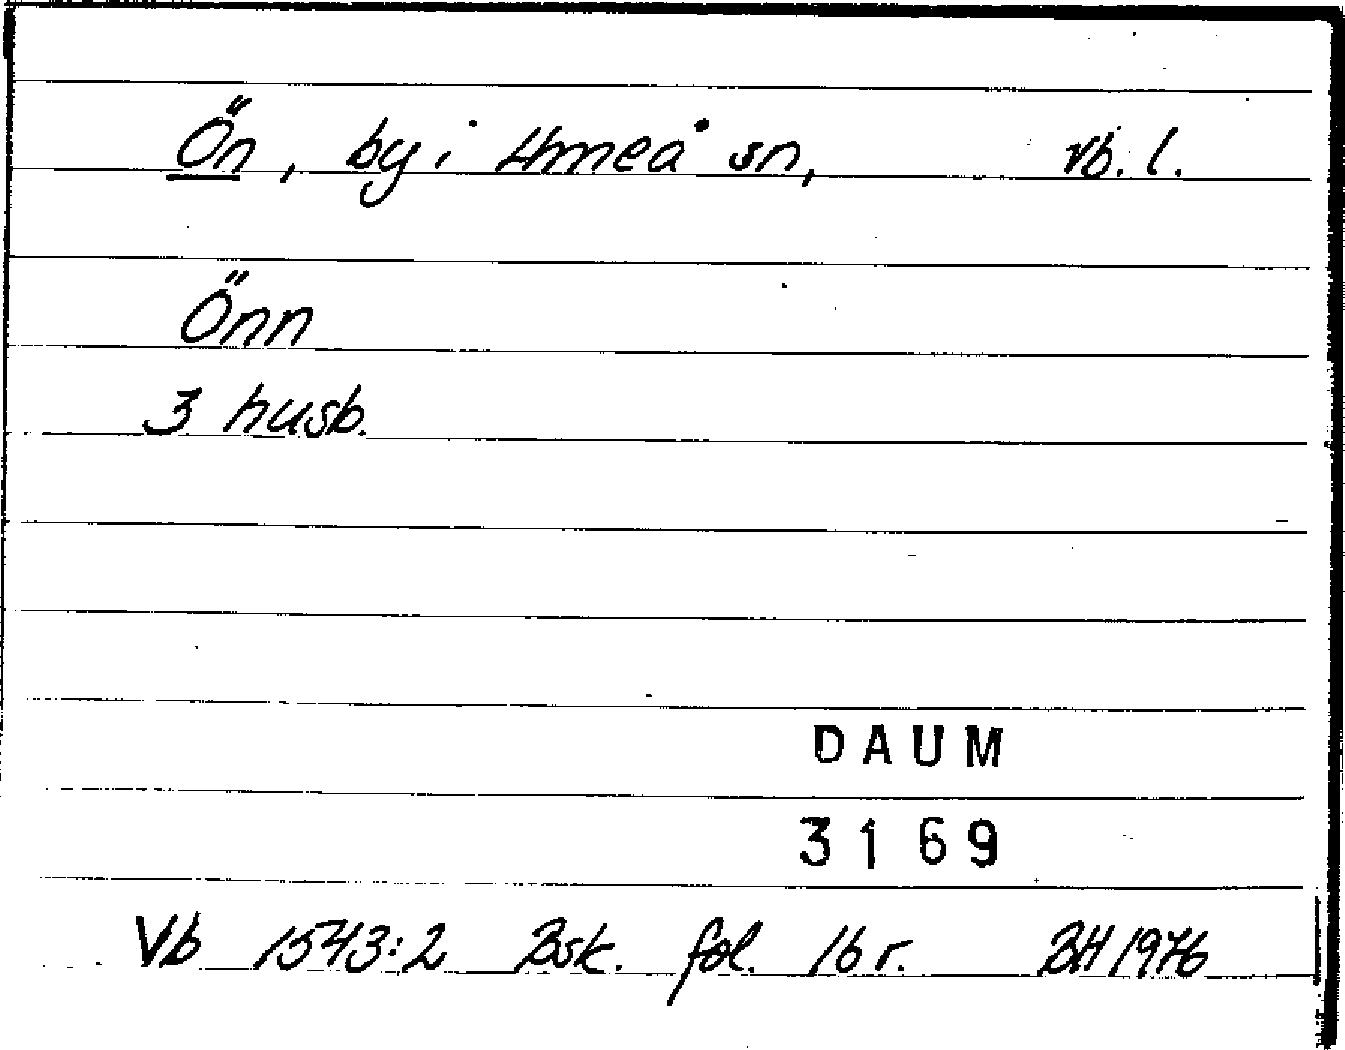 Ön, by i Umeå sn, Vb. l.
Önn
3 husb.
DAUM
3169
Vb 1543:2 Bsk. fol. 16 r. BH 1976